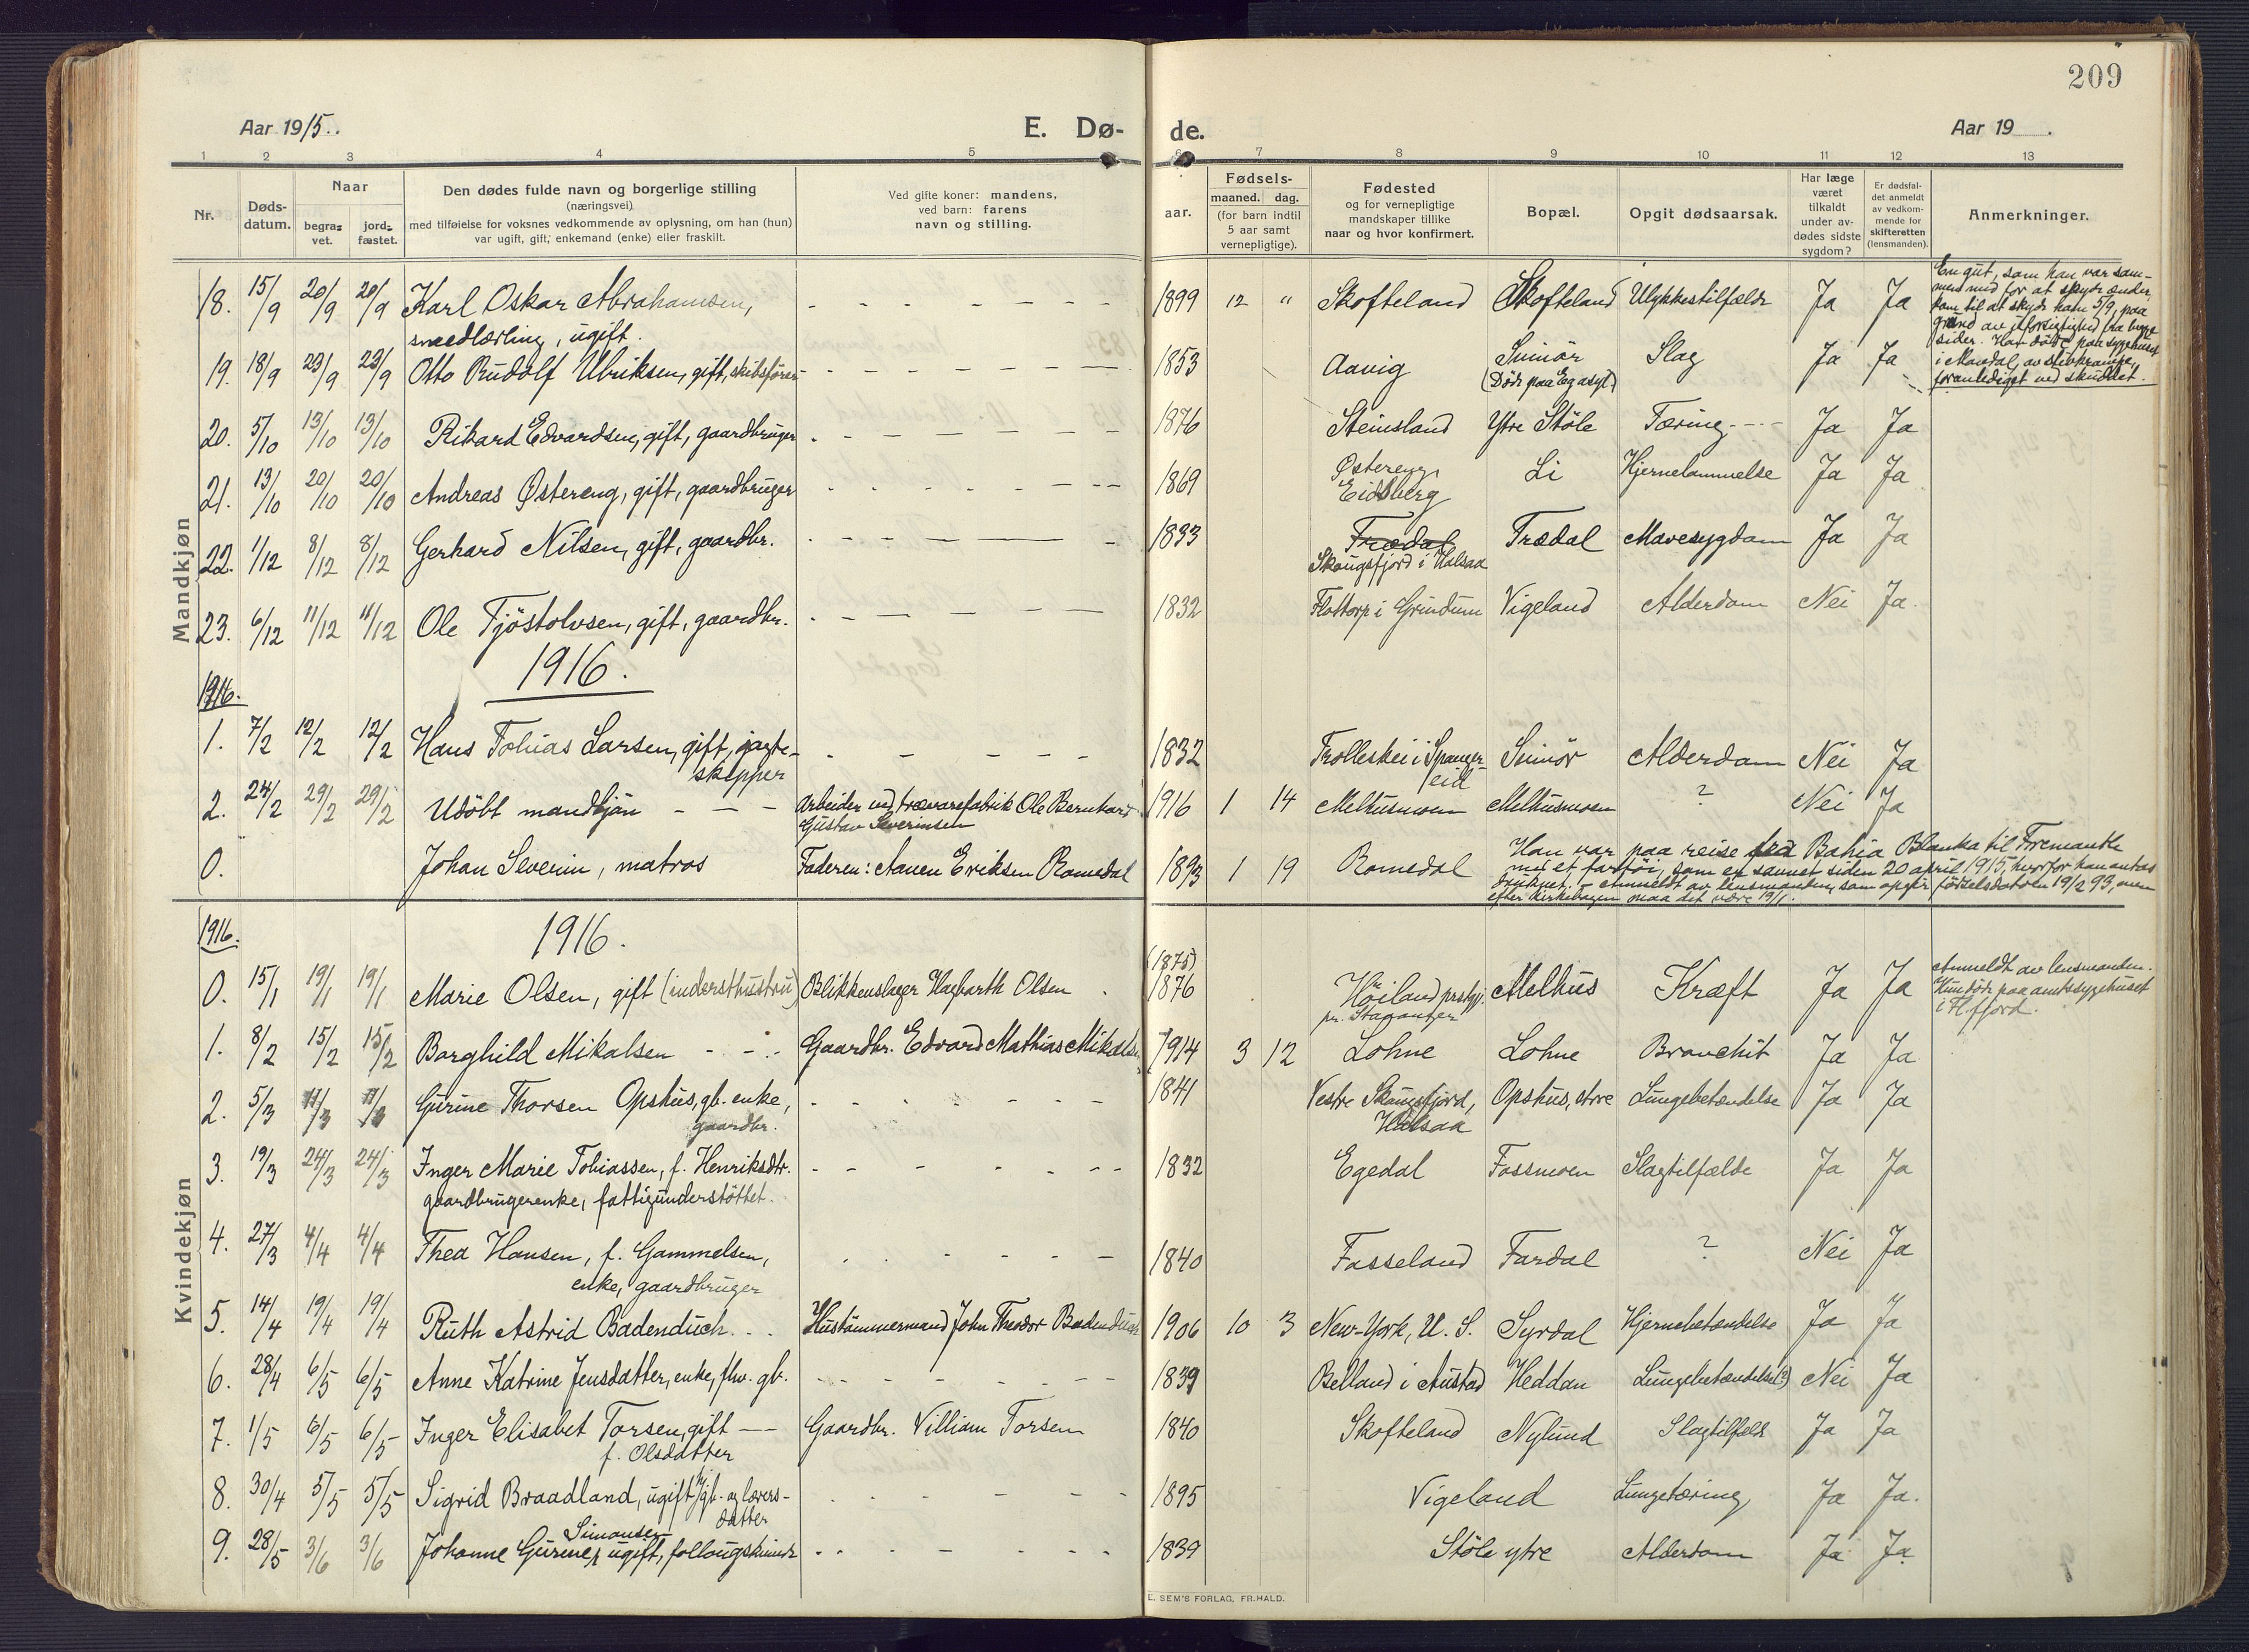 209
Aar 1915.. E. Dø- de. Aar 19 .
1 2 3 4 5 6 7 8 9 10 11 12 13
Nr. Døds-datum. Naar begra-vet. jord-fæstet. Den dødes fulde navn og borgerlige stilling (næringsvei) med tilføielse for voksnes vedkommende av oplysning, om han (hun) var ugift, gift, enkemand (enke) eller fraskilt. Ved gifte koner: mandens, ved barn: farens navn og stilling. aar. Fødsels- maaned. dag. (for barn indtil 5 aar samt vernepligtige). Fødested og for vernepligtige mandskaper tillike naar og hvor konfirmert. Bopæl. Opgit dødsaarsak. Har læge været tilkaldt under av-dødes sidste sygdom? Er dødsfal-det anmeldt av vedkom-mende for skifteretten (lensmanden). Anmerkninger.
Mandkjøn
18. 15/9 20/9 20/9 Karl Oskar Abrahamsen, smedlærling, ugift. 1899 12 " Skofteland Skofteland Ulykkestilfælde Ja Ja
En gut, som han var sam-
men med for at skyde ænder,
kom til at skyde ham 5/9, paa
grund av uforsigtighed fra begge
sider. Han døde paa sygehuset
i Mandal, av stivkrampe,
foranlediget ved skuddet.
19. 18/9 23/9 23/9 Otto Rudolf Ulriksen, gift, skibsfører 1853 Aavig Svinør (Døde paa Eg asyl) Slag Ja Ja
20. 5/10 13/10 13/10 Rikard Edvardsen, gift, gaardbruger 1876 Steinsland Ytre Støle Tæring Ja Ja
21. 13/10 20/10 20/10 Andreas Østereng, gift, gaardbruger 1869 Østereng, Eidsberg Li Hjernelammelse Ja Ja
22. 1/12 8/12 8/12 Gerhard Nilsen, gift, gaardbr. 1833 Trædal Skougsfjord i Halsaa Trædal Mavesygdom Ja Ja
23. 6/12 11/12 11/12 Ole Tjøstolvsen, gift, gaardbr. 1832 Flottorp i Grindum Vigeland Alderdom Nei Ja.
1916.
1916.
1. 7/2 12/2 12/2 Hans Tobias Larsen, gift, jagte-skipper 1832 Trolleskei i Spanger-eid Svinør Alderdom Nei Ja
2. 24/2 29/2 29/2 Udöbt mandkjön Arbeider ved trævarefabrik Ole Bernhard Gustav Severinsen 1916 1 14 Melhusmoen Melhusmoen ? Nei Ja
0. Johan Severin, matros Faderen: Aanen Eriksen Romedal 1893 1 19 Romedal
Han var paa reise fra Bahia Blanka til Fremantle
med et fartøi, som er savnet siden 20 april 1915, hvorfor han antas
druknet. – Anmeldt av lensmanden, som opgir fødselsdatoen 19/2 93, men
efter kirkebogen maa det være 19/1.
Kvindekjøn
1916. 1916.
0. 15/1 19/1 19/1 Marie Olsen, gift (indersthustru) Blikkenslager Hagbarth Olsen (1875) 1876 Höiland prstgj. pr. Stavanger Melhus Kræft Ja Ja
Anmeldt av lensmanden.
Hun døde paa amtssygehuset
i Fl.fjord.
1. 8/2 15/2 15/2 Borghild Mikalsen Gaardbr. Edvard Mathias Mikalsen 1914 3 12 Lohne Lohne Bronchit Ja Ja
2. 5/3 11/3 Gurine Thorsen Opshus, gb. enke, gaardbr. 1841 Vestre Skougsfjord, Halsaa Opshus, store Lungebetændelse Ja Ja
3. 19/3 24/3 24/3 Inger Marie Tobiassen, f. Henriksdtr. gaardbrugerenke, fattigunderstöttet. 1832 Egedal Fossmoen Slagtilfælde Ja Ja
4. 27/3 4/4 4/4 Thea Hansen, f. Gammelsen, enke, gaardbruger 1840 Fasseland Fardal ? Nei Ja
5. 14/4 19/4 19/4 Ruth Astrid Badenduch. Hustömmermand John Theodor Badenduch 1906 10 3 New-York, U. S. Syrdal Hjernebetændelse Ja Ja
6. 28/4 6/5 6/5 Anne Katrine Jensdatter, enke, fhv. gb. 1839 Belland i Austad Heddan Lungebetændelse(?) Nei Ja
7. 1/5 6/5 6/5 Inger Elisabet Torsen, gift f. Olsdatter Gaardbr. Villiam Torsen 1840 Skofteland Nylund Slagtilfælde Ja Ja
8. 30/4 5/5 5/5 Sigrid Braadland, ugift, gb- og lærers-datter 1895 Vigeland Lungetæring Ja Ja.
9. 28/5 3/6 3/6 Johanne Gurine Simonsen, ugift, føllougskvinde 1839 Støle ytre Alderdom Ja Ja
E. SEM'S FORLAG, FR.HALD.